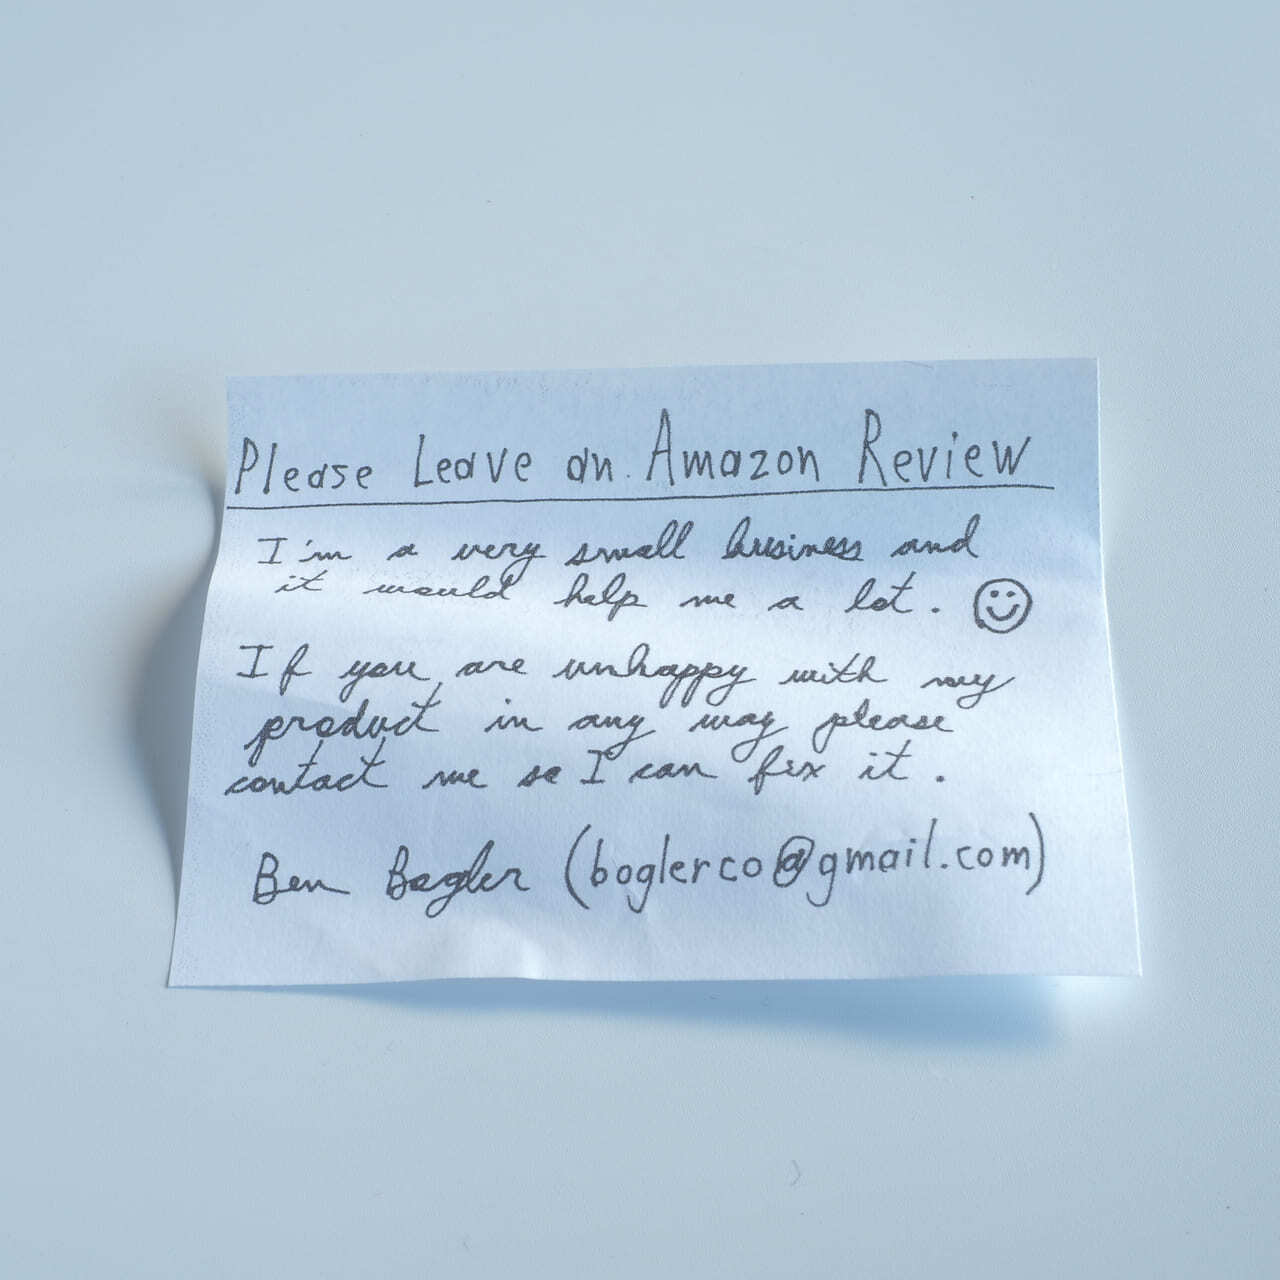 Please Leave an Amazon Review
I'm a very small business and
it would help me a lot. ☺
If you are unhappy with my
product in any way please
contact me so I can fix it.
Ben Bogler (boglerco@gmail.com)